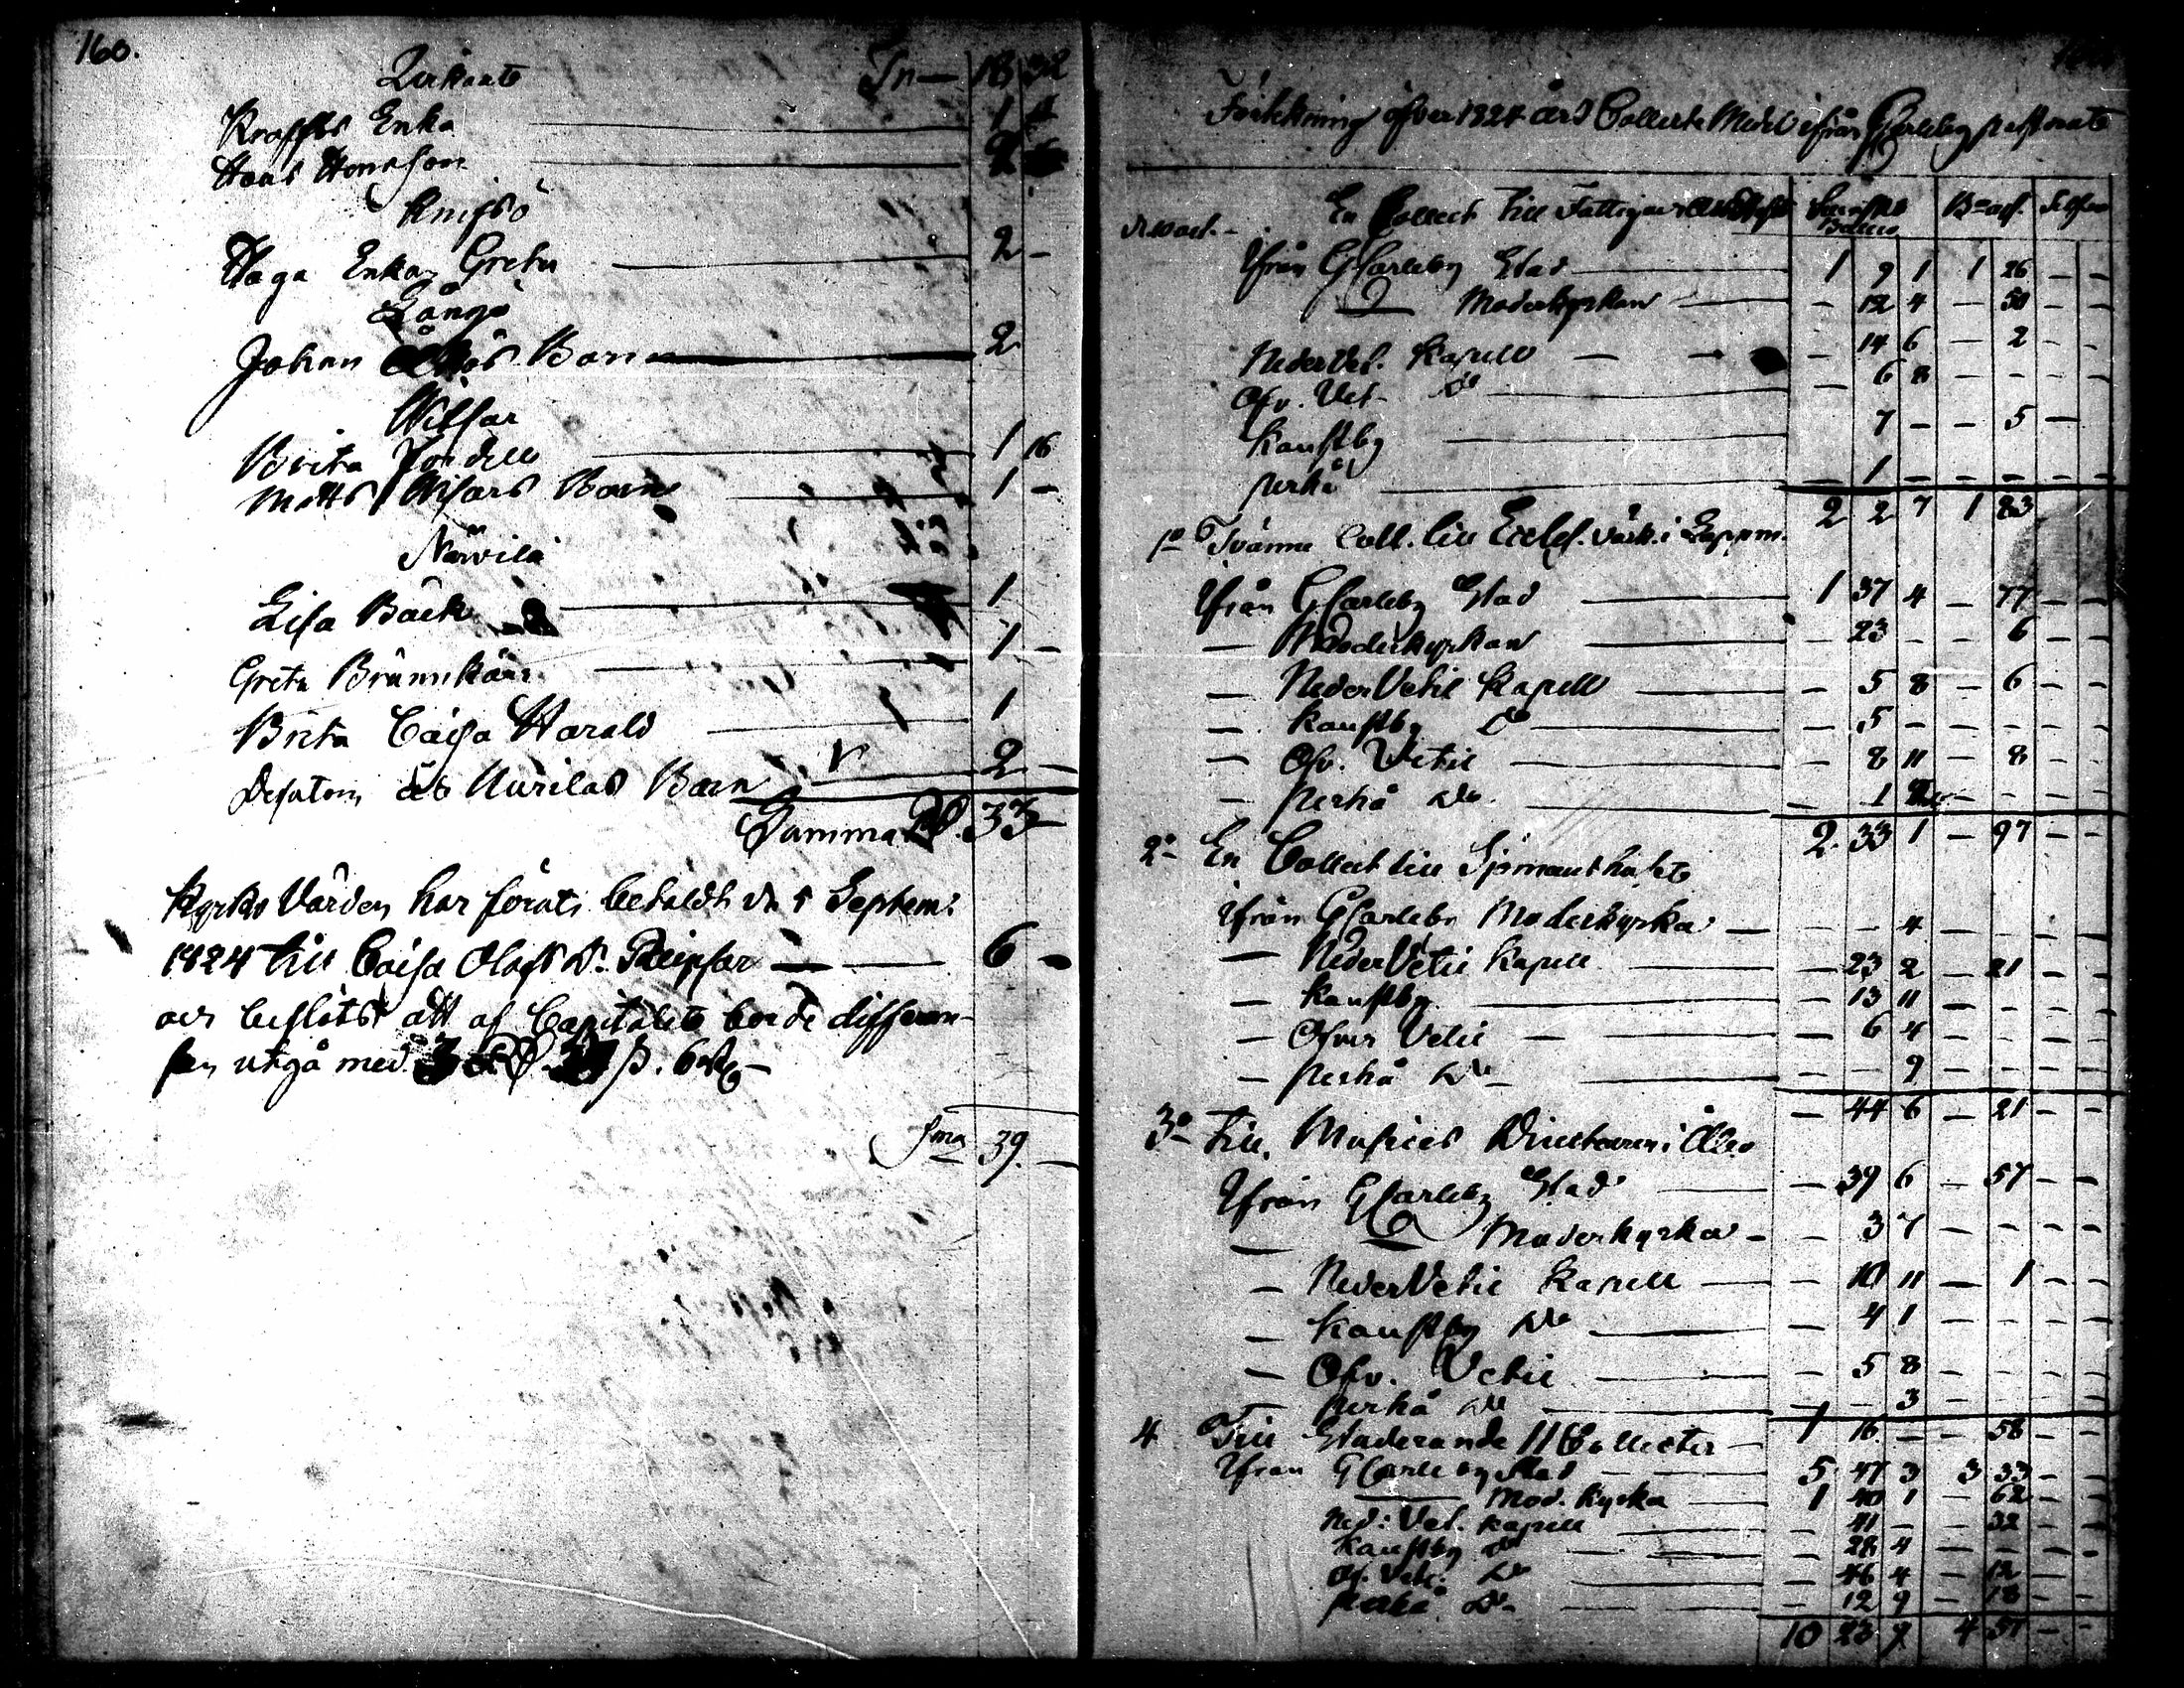 160.
Tr — 18 32
Kraffts Enka — 1
Hans Hansson — 2
Knifsö
Haga Enkan Greta — 2 —
Långö
Johan Barn — 2
Wilsar
Brita Jordell — 1 16
Matts Wisars Barn — 1 —
Närvilä
Lisa Bäck — 1
Greta Brännkärr — 1 —
Brita Caisa Harald — 1
Desutom åt Närilas Barn — 2 —
Summa Rd. 33 —
Kyrko Värden har förut betaldt d. 5 Septem:
1824 till Caisa Olofs D. Reipsar — 6 —
och beslöts att af Capitalet borde differen-
sen utgå med ß. 6
Sma 39. —
Förteckning öfver 1824 års Collecte Medel ifrån GCarleby pastorat
En Collect till Fattiga
Ifrån GCarleby Stad — 1 9 1 1 26 — —
D Moderkyrkan — — 12 4 — 50 — —
NederVet. Kapell — — 14 6 — 2 — —
Öfv. Vet. Do — — 6 8 — — — —
Kaustby — 7 — — 5 —
Perho — — 1 — — — — —
2 2 7 1 83
1o Tvänne Coll. till Eccles. värk. i Lappm.
Ifrån GCarleby Stad — 1 37 4 — 77 — —
— Moderkyrkan — — 23 — — 6 — —
— NederVetil Kapell — — 5 8 — 6 — —
— Kaustby Do — — 5 — — — — —
— Öfv. Vetil — — 8 11 — 8 — —
— Perho Do — — 1 — — — —
2 33 1 — 97 — —
2o En Collect till Sjömanshuset
Ifrån GCarleby Moderkyrka — — — 4 — — — —
— NederVetil Kapell — — 23 2 — 21 — —
— Kaustby — — 13 11 — — — —
— Öfver Vetil — — 6 4 — — — —
— Perho Do — — — 9 — — — —
— 44 6 — 21 — —
3o Till Musices Directeuren i Åbo
Ifrån GCarleby Stad — — 39 6 — 57 — —
— Moderkyrka — — 3 7 — — — —
— NederVetil Kapell — — 10 11 — 1 — —
— Kaustby Do — — 4 1 — — — —
— Öfv. Vetil — — 5 8 — — — —
— Perho Do — — — 3 — — — —
1 16 — — 58 — —
4 Till Studerande 11 Collecter
Ifrån GCarleby Stad — 5 47 3 3 33 — —
— Mod. Kyrka — 1 40 1 — 62 — —
Ned: Vet. Kapell — — 41 — — 32 — —
Kaustby Do — — 28 4 — — — —
Öf. Vetil Do — — 46 4 — 12 — —
Perho Do — — 12 9 — 18 — —
10 23 9 4 57 — —